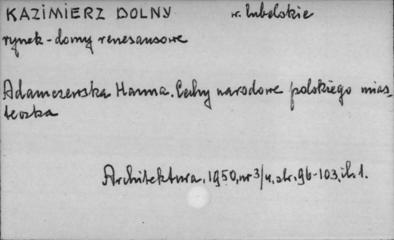 KAZIMIERZ DOLNY w. lubelskie
rynek - domy renesansowe
Adamczewska Hanna. Cechy narodowe polskiego mias-
teczka
Architektura. 1950, nr 3/4, str. 96-103, il. 1.